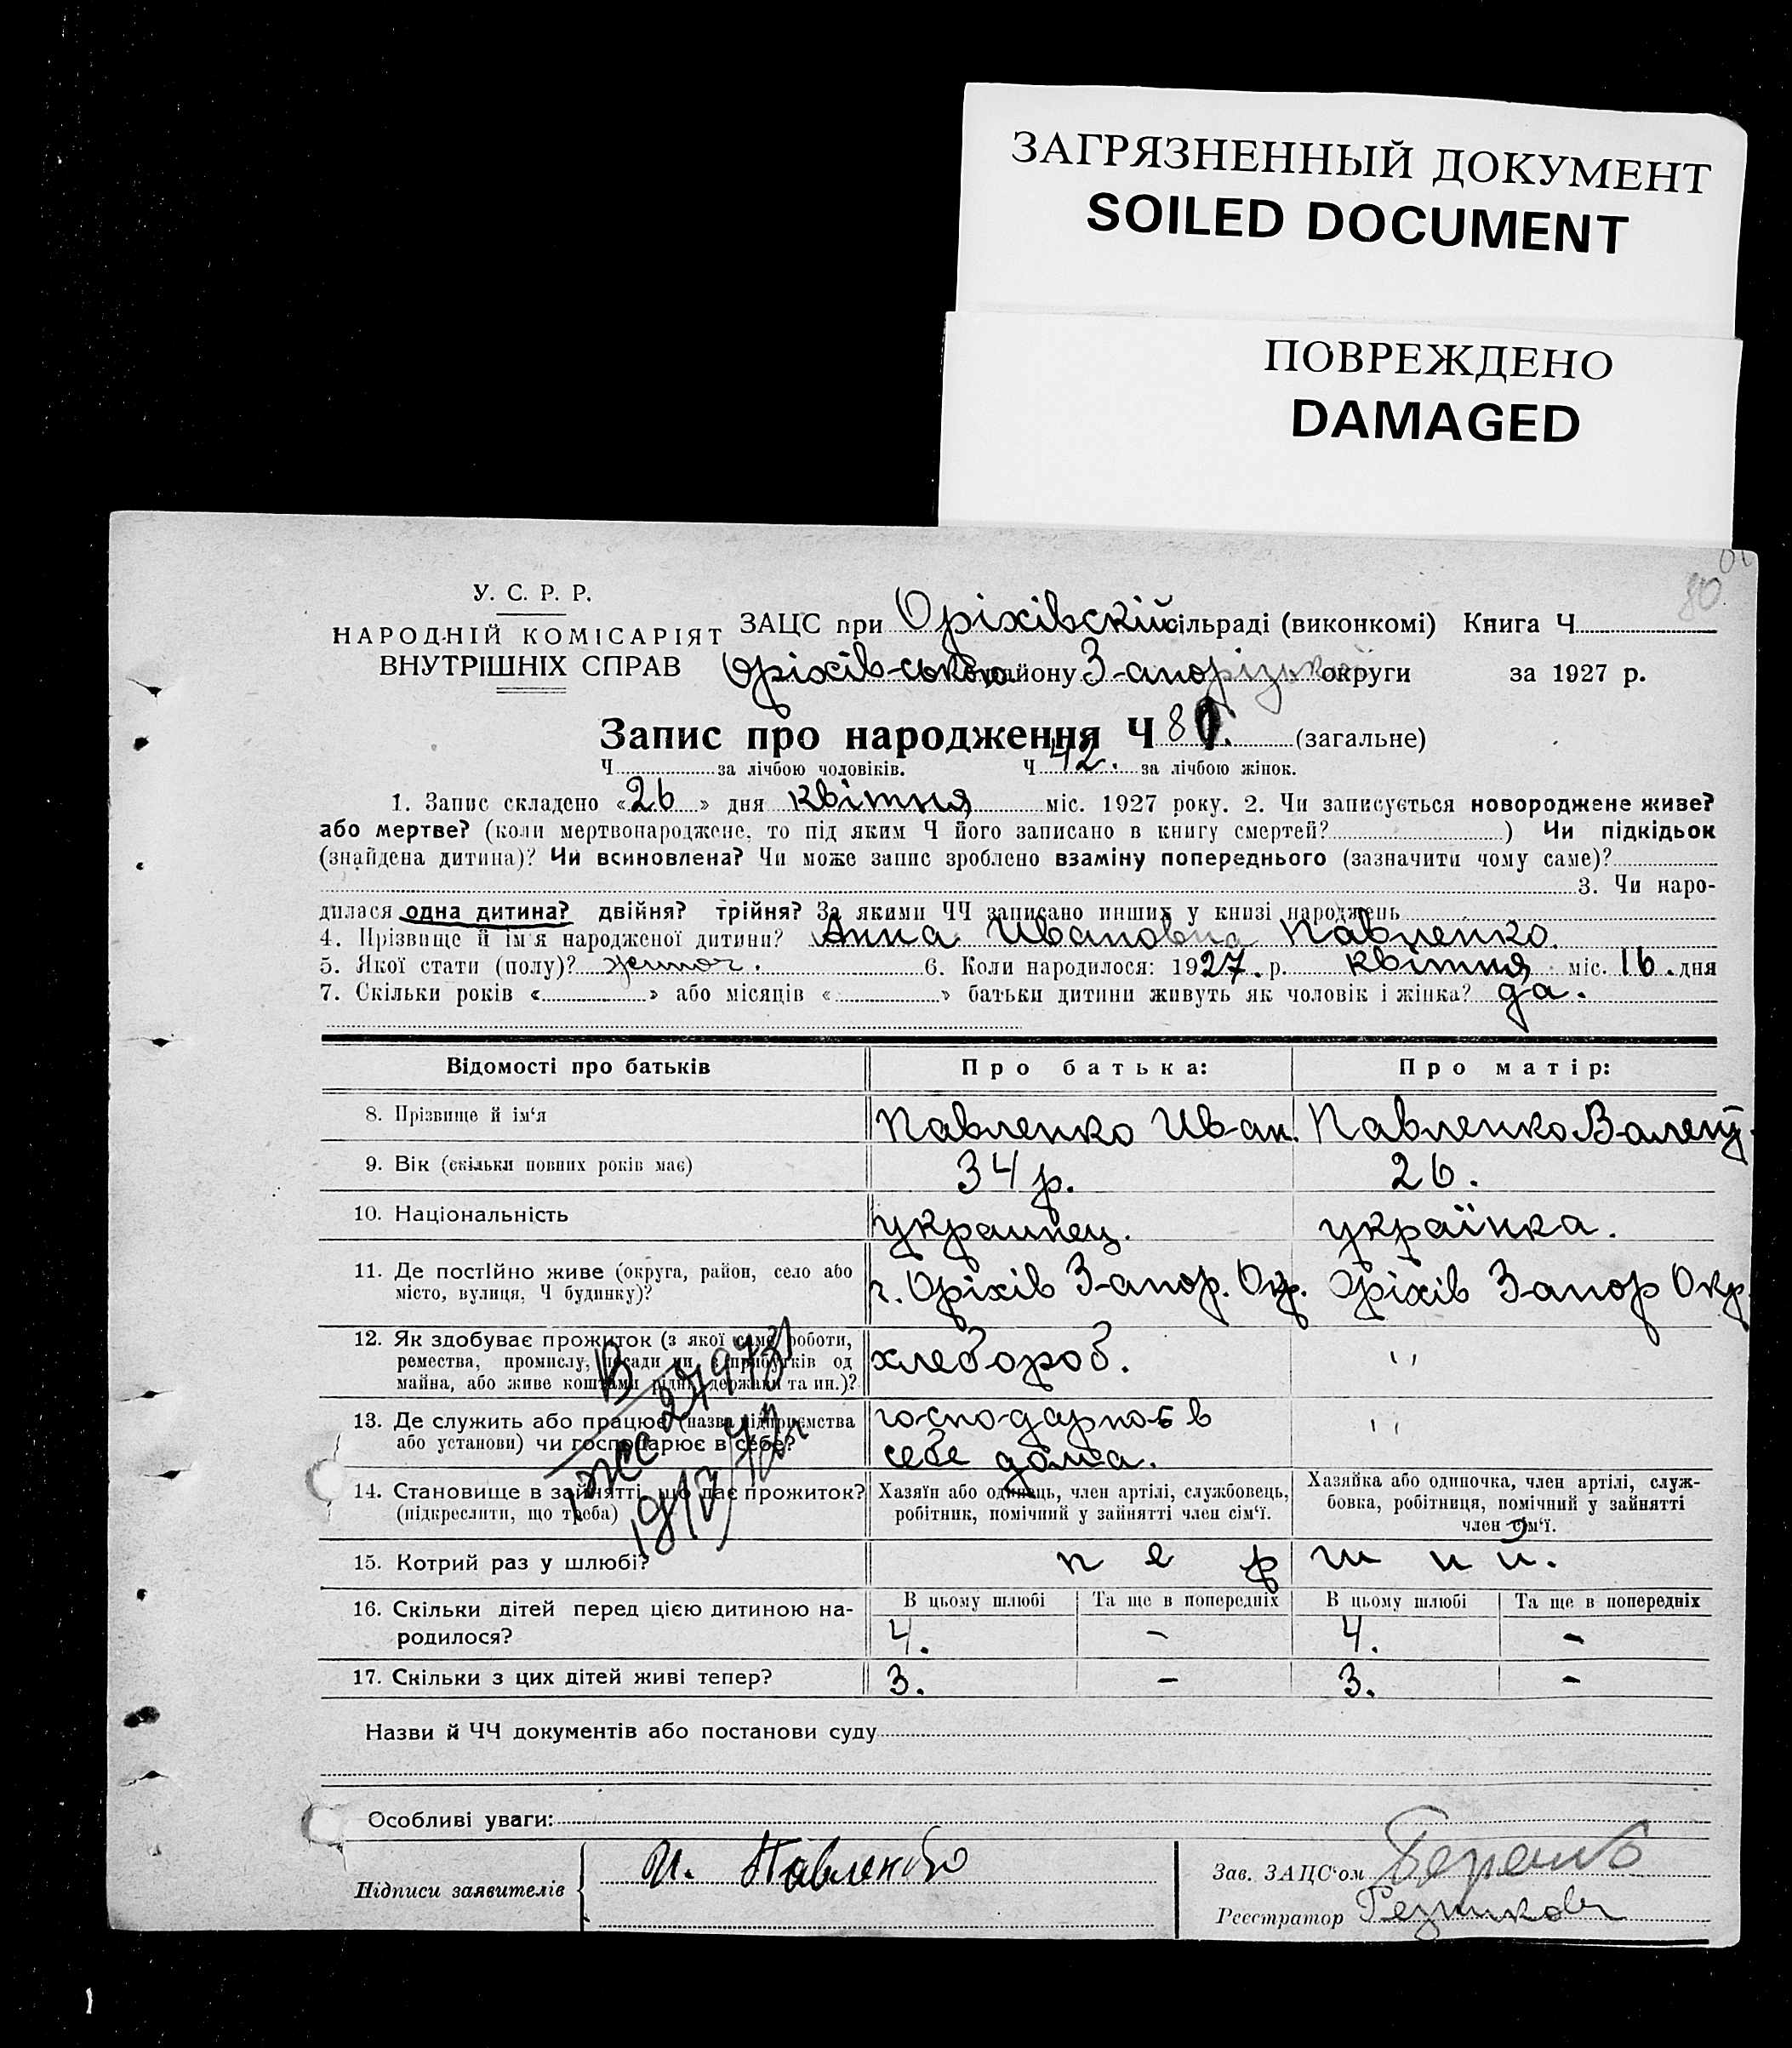 ЗАГРЯЗНЕННЫЙ ДОКУМЕНТ
SOILED DOCUMENT
ПОВРЕЖДЕНО
DAMAGED
80
У. С. Р. Р.
НАРОДНІЙ КОМІСАРІЯТ
ВНУТРІШНІХ СПРАВ
ЗАЦС при Оріхівскій сільраді (виконкомі) Книга Ч
Оріхів-ського району З-апорізької округи за 1927 р.
Запис про народження Ч 80. (загальне)
Ч за лічбою чоловіків. Ч 42. за лічбою жінок.
1. Запис складено «26» дня квітня міс. 1927 року. 2. Чи записується новороджене живе?
або мертве? (коли мертвонароджене, то під яким Ч його записано в книгу смертей? ) Чи підкідьок
(знайдена дитина)? Чи всиновлена? Чи може запис зроблено взаміну попереднього (зазначити чому саме)?
3. Чи наро-
дилася одна дитина? двійня? трійня? За якими ЧЧ записано инших у книзі народжень
4. Прізвище й ім'я народженої дитини? Анна Ивановна Павленко.
5. Якої стати (полу)? жиноч. 6. Коли народилося: 1927. р. квітня міс. 16. дня
7. Скільки років « » або місяців « » батьки дитини живуть як чоловік і жінка? да.
Відомості про батьків Про батька: Про матір:
8. Прізвище й ім'я Павленко Иван. Павленко Валент.
9. Вік (скільки повних років має) 34 р. 26.
10. Національність украинец. українка.
11. Де постійно живе (округа, район, село або
місто, вулиця, Ч будинку)? г. Оріхів З-апор. Окр. Оріхів Запор Окр.
12. Як здобуває прожиток (з якої саме роботи,
ремества, промислу, посади чи з прибутків од
майна, або живе коштами рідні, держави та ин.)? хлебороб. ''
13. Де служить або працює (назва підприємства
або установи) чи господарює в себе? господарює в
себе дома. ''
14. Становище в зайнятті, що дає прожиток?
(підкреслити, що треба)
Хазяїн або одинець, член артілі, службовець,
робітник, помічний у зайнятті член сім'ї.
Хазяйка або одиночка, член артілі, служ-
бовка, робітниця, помічний у зайнятті
член сім'ї.
15. Котрий раз у шлюбі? п е р ш и й.
16. Скільки дітей перед цією дитиною на-
родилося?
В цьому шлюбі Та ще в попередніх В цьому шлюбі Та ще в попередніх
4. - 4. -
17. Скільки з цих дітей живі тепер? 3. - 3. -
Назви й ЧЧ документів або постанови суду
Особливі уваги:
Підписи заявителів И. Павленко
Зав. ЗАЦС'ом
Реєстратор